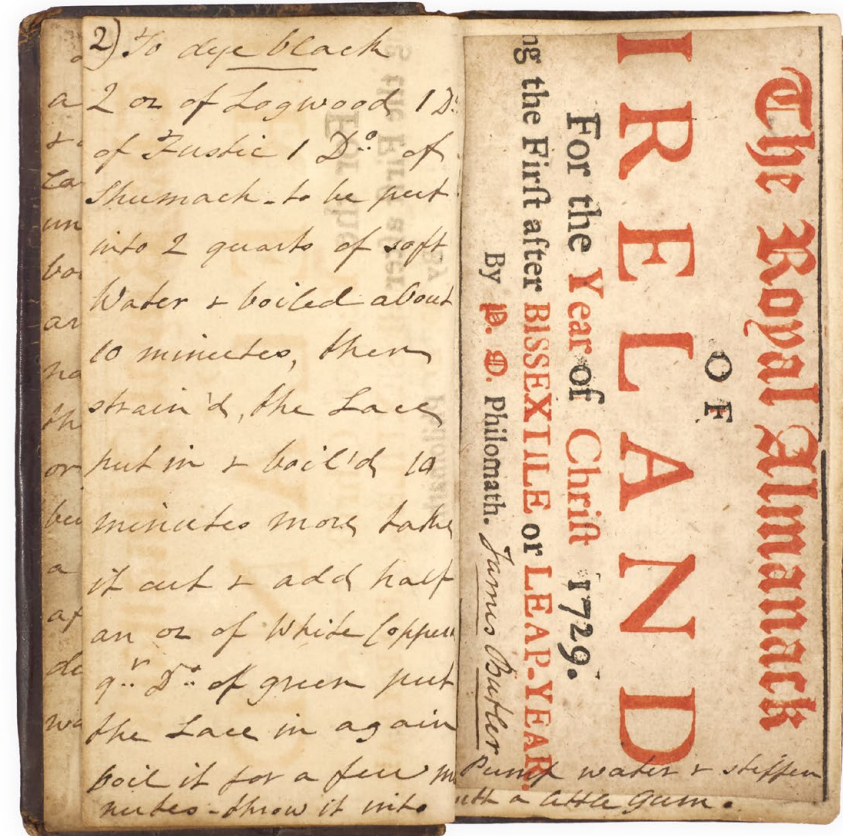 2) To dye black
2 oz of Logwood 1 Do.
of Fustic 1 Do. of
Shumack - to be put
into 2 quarts of soft
Water & boiled about
10 minutes, then
strain'd, the Lace
put in & boil'd 10
minutes more take
it out & add half
an oz of White Copper
qr. Do. of green put
the Lace in again
boil it for a few mi
nutes - throw it into
Pump water & stiffen
with a little Gum.
The Royal Almanack
OF
IRELAND
For the Year of Chriſt 1729.
ng the Firſt after BISSEXTILE or LEAP-YEAR.
By P. D. Philomath. James Butler
a
&
La
un
bo
ar
na
th
or
be
a
af
de
wa